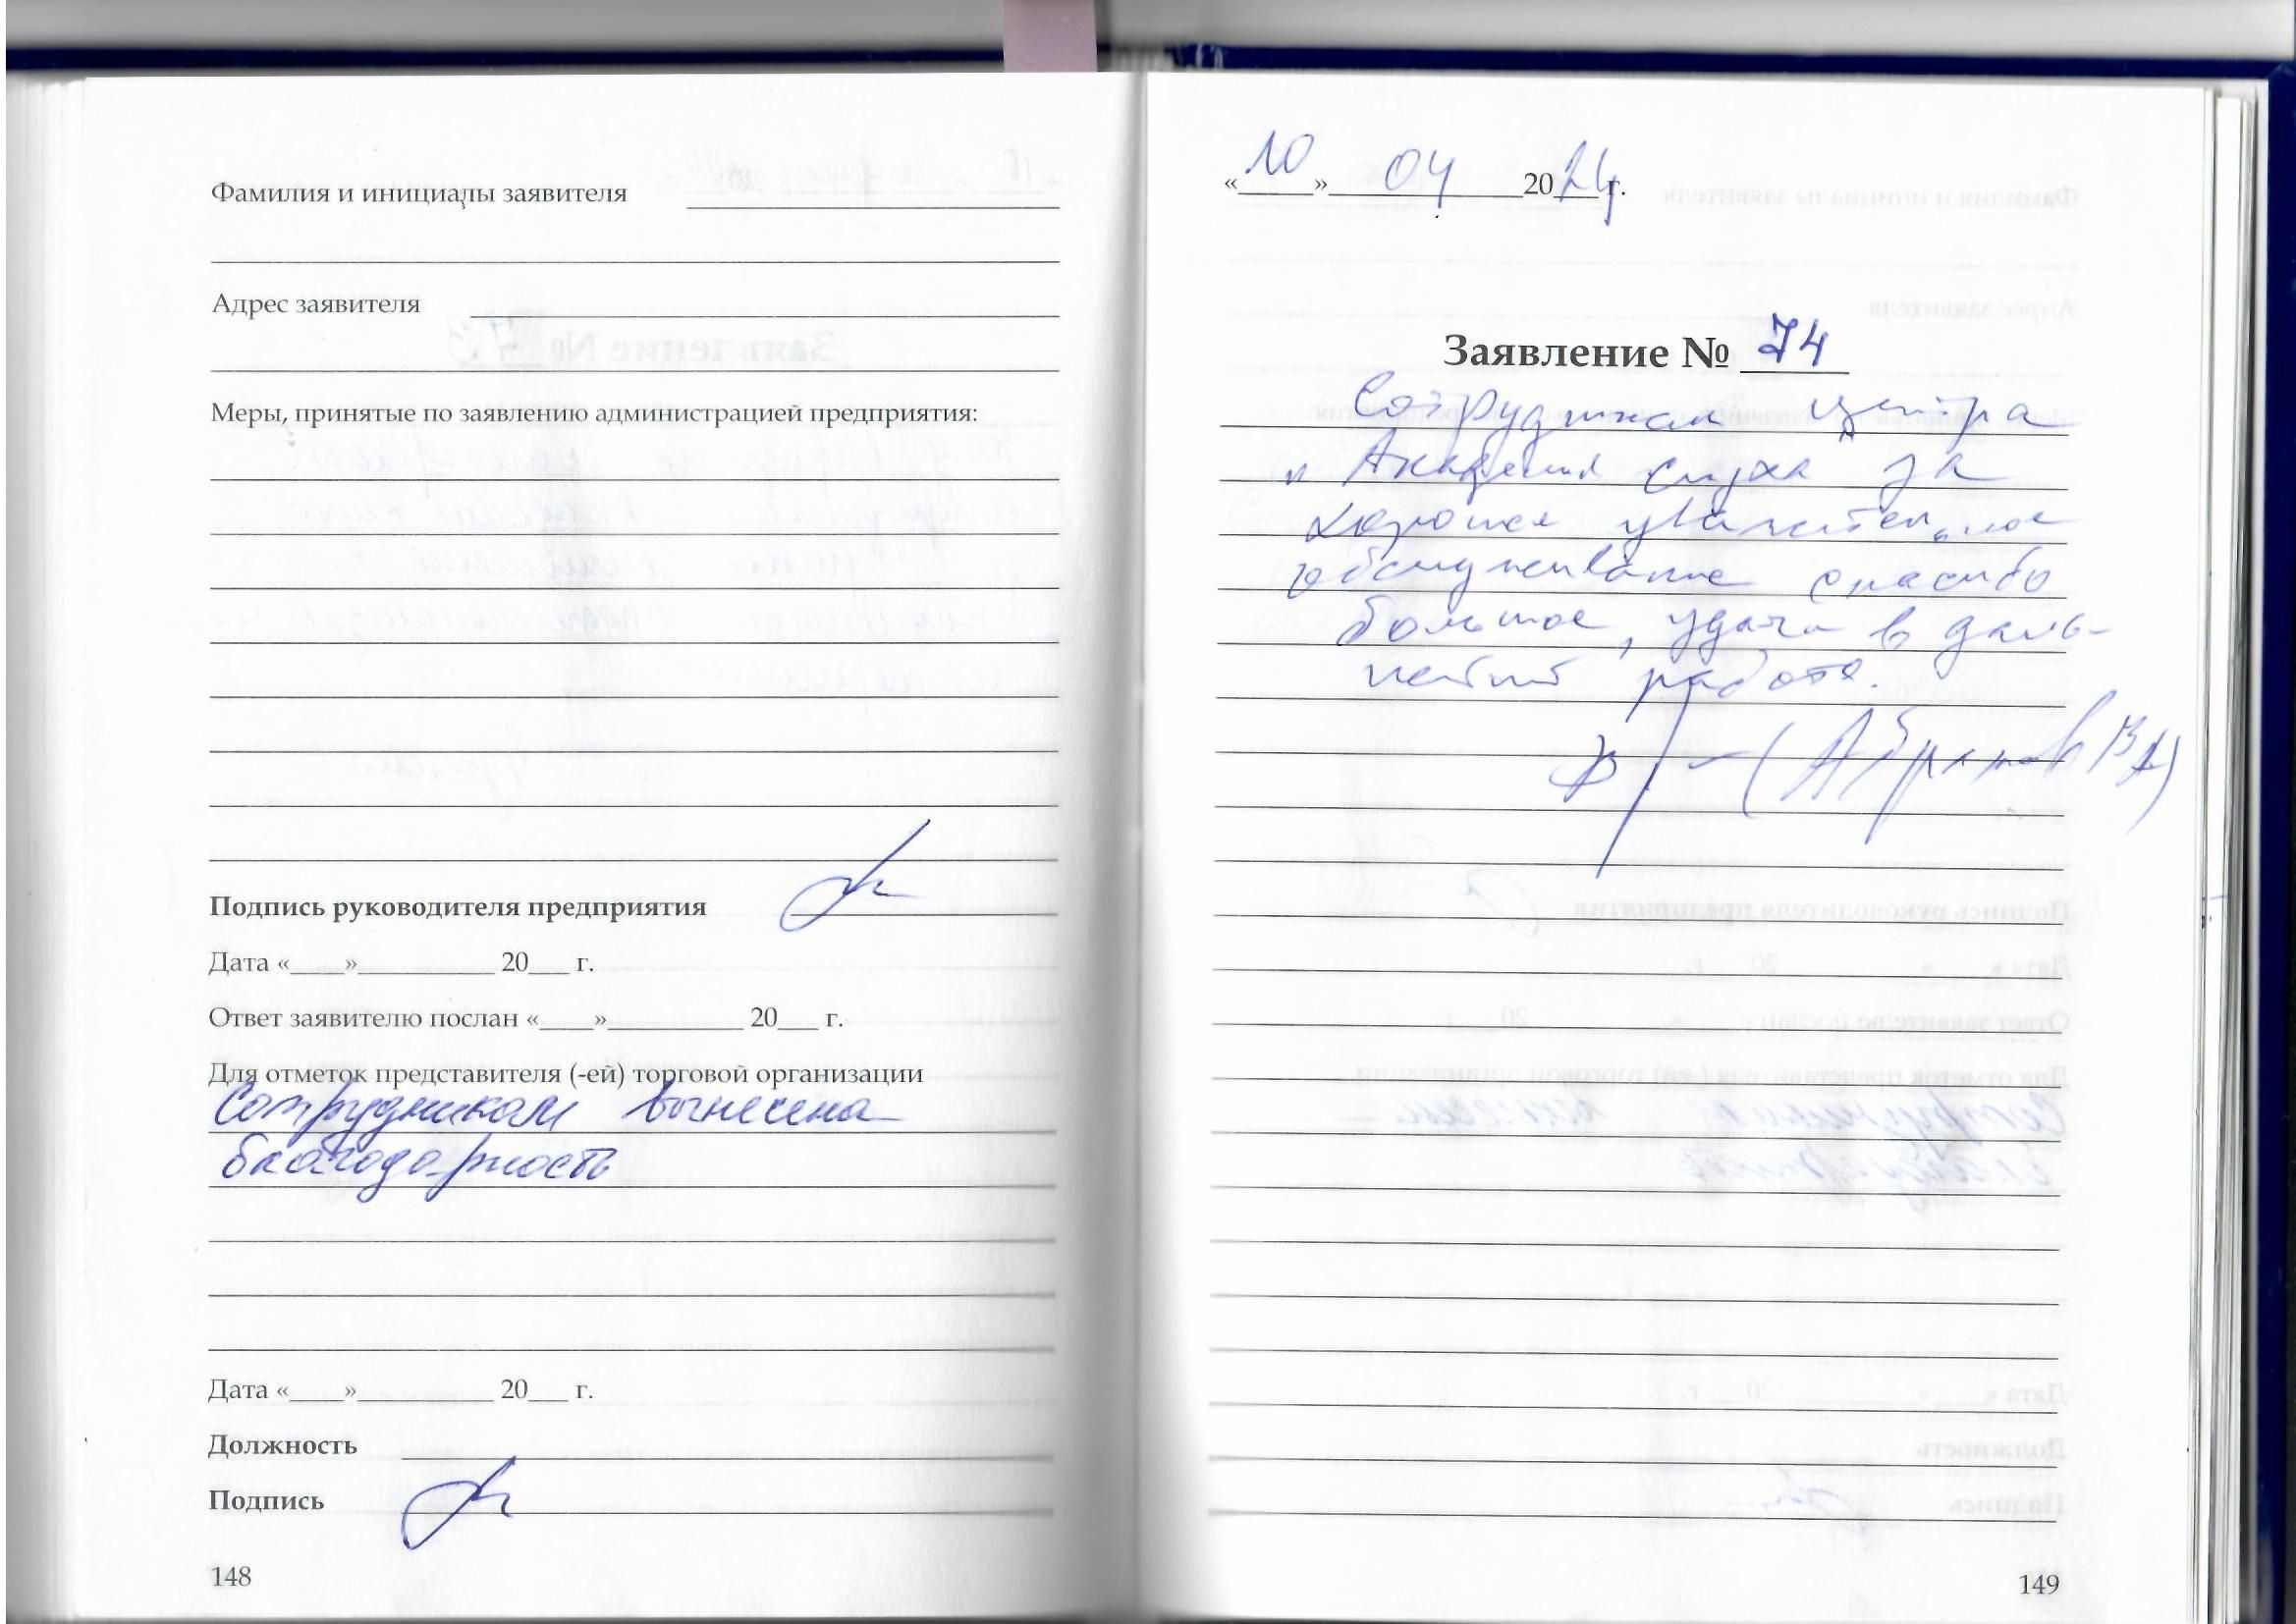 Фамилия и инициалы заявителя
Адрес заявителя
Меры, принятые по заявлению администрацией предприятия:
Подпись руководителя предприятия
Дата «____»__________ 20___ г.
Ответ заявителю послан «____»__________ 20___ г.
Для отметок представителя (-ей) торговой организации
Сотрудникам вынесена
благодарность
Дата «____»__________ 20___ г.
Должность
Подпись
148
«10» 04 2024 г.
Заявление № 74
Сотрудникам центра
"Академия слуха за
хорошее уважительное
обслуживание спасибо
большое, удачи в даль-
нейшей работе.
(Абрамов ВА)
149